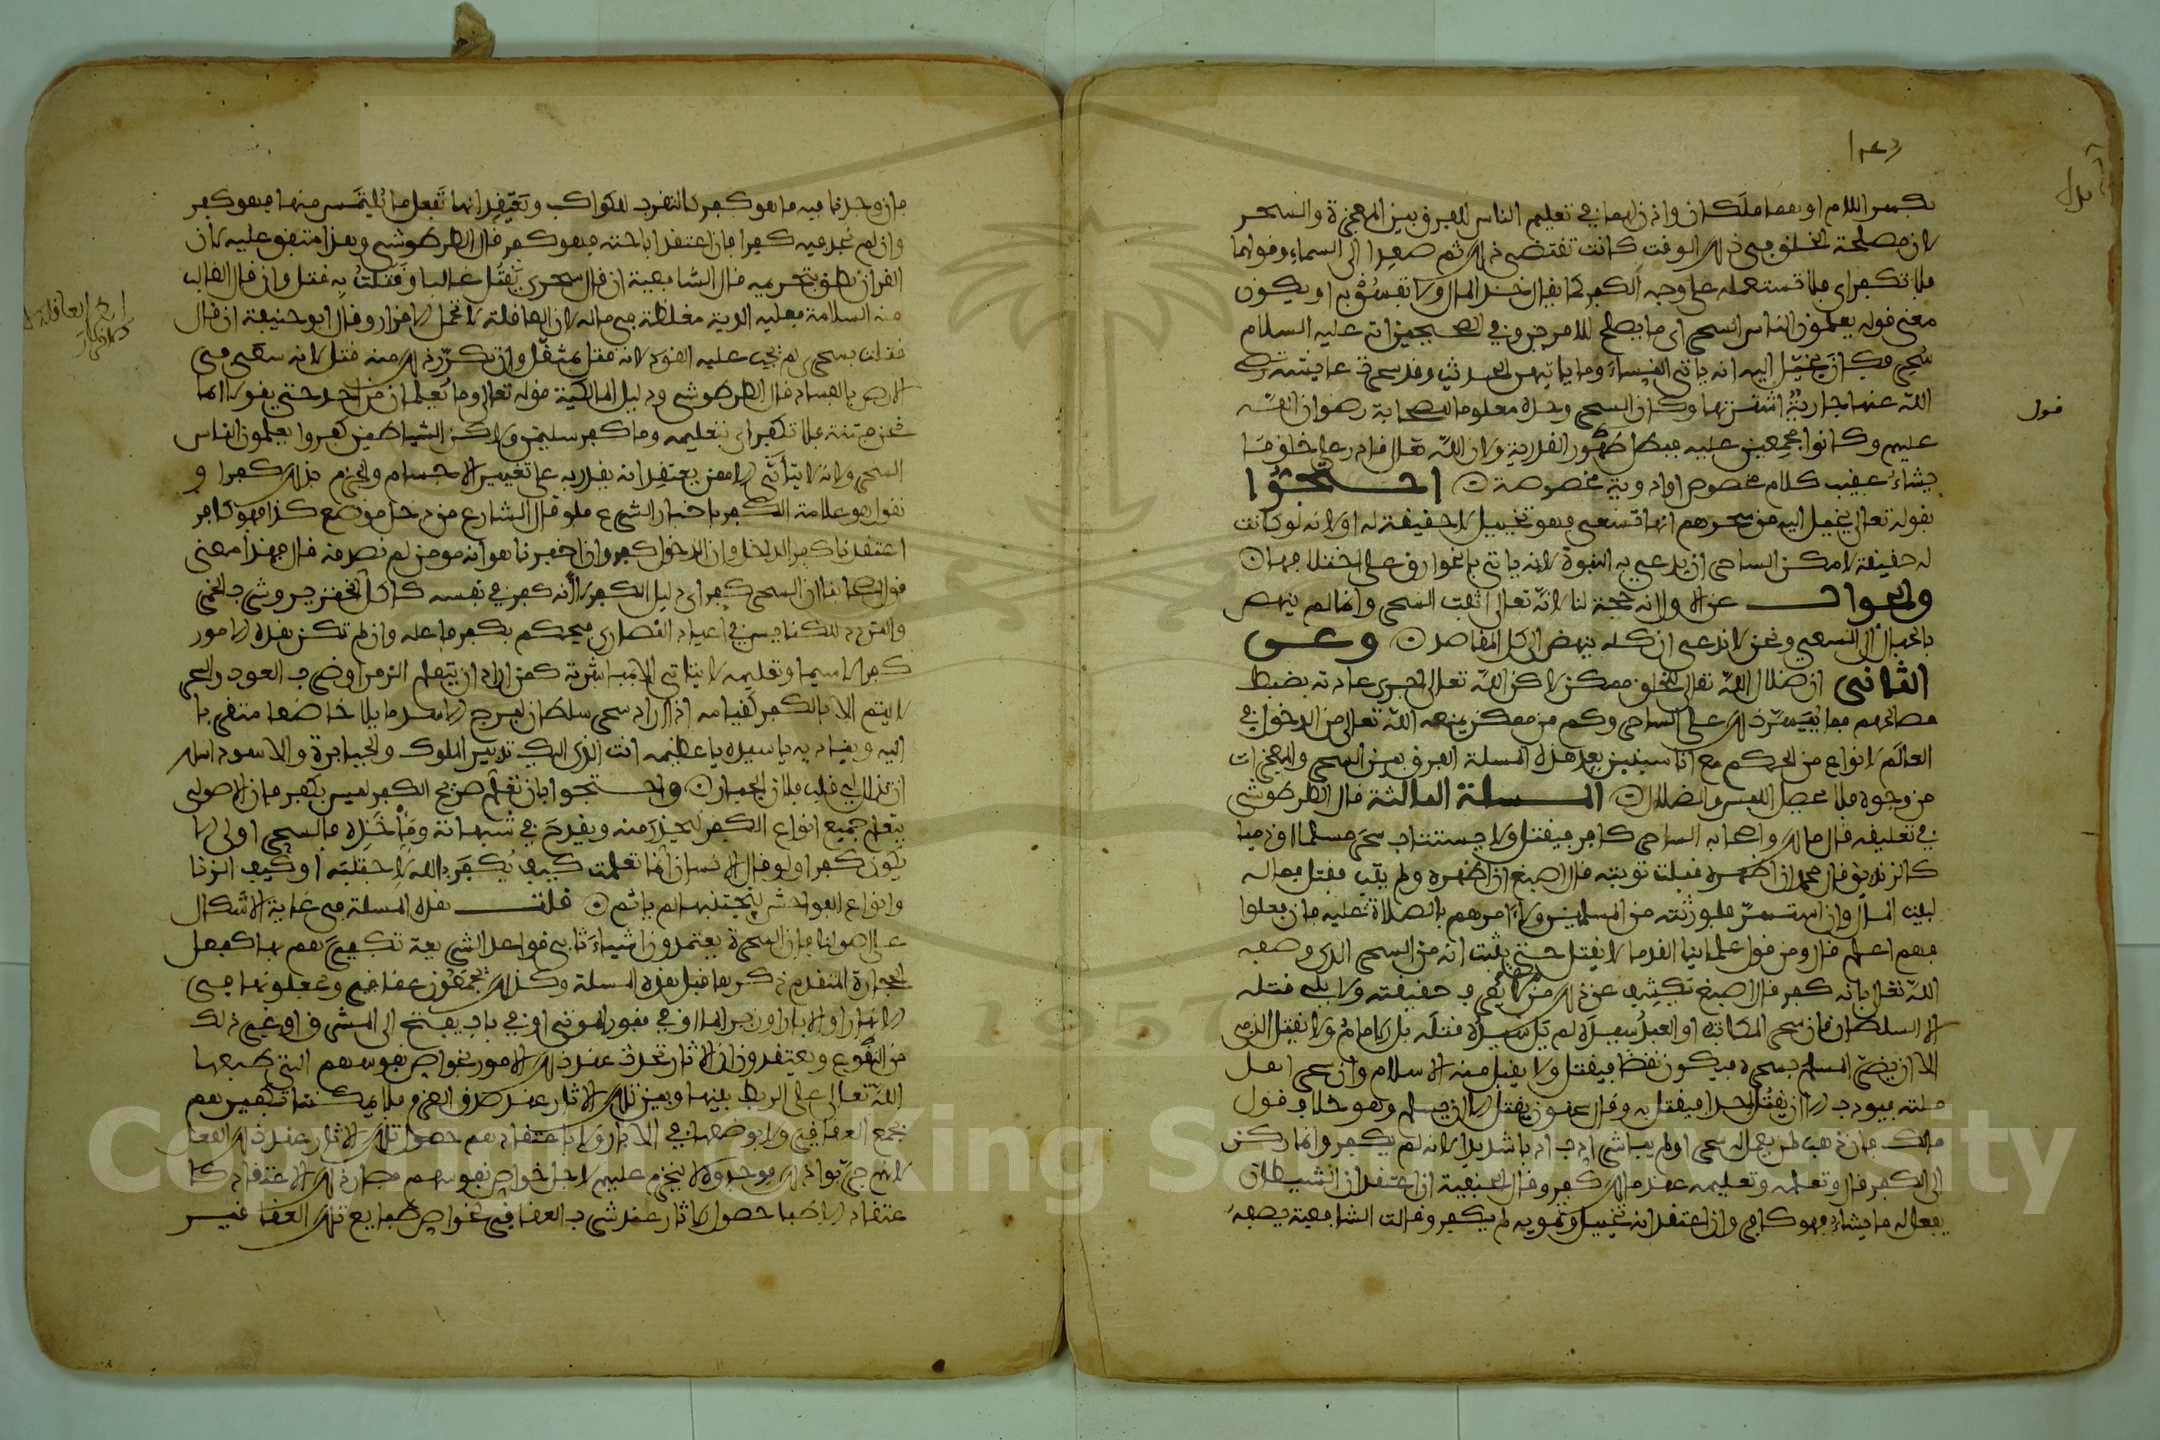 بكسر اللام او هما ملكان واذن لهما في تعليم الناس للفرق بين المعجزة والسحر
لان مصلحة الخلق في ذلك الوقت كانت تقتضي ذلك ثم صعدا الى السماء وقولهما
فلا تكفر اي فلا تستعمله على وجه الكفر كما يقال خذ المال ولا تفسق به او يكون
معنى قوله يعلمون الناس السحر اي ما يصلح للامرين وفي الصحيحين انه عليه السلام
سحر فكان يخيل اليه انه ياتي النساء وما ياتيهن الحديث وقد سحرت عايشة رضي
الله عنها جارية اشترتها وكان السحر وخبره معلوما للصحابة رضوان الله
عليهم وكانوا مجمعين عليه قبل ظهور القدرية ولان الله تعالى قادر على خلق ما
يشاء عقيب كلام مخصوص او ادوية مخصوصة احتجوا
بقوله تعالى يخيل اليه من سحرهم انها تسعى فهو تخييل لا حقيقة له ولانه لو كانت
له حقيقة لامكن الساحر ان يدعي به النبوة لانه ياتي بالخوارق على اختلافها
والجواب عن الاول انه حجة لنا لانه تعالى اثبت السحر وانما لم ينهض
بالخيال الى السعي ونحن لا ندعي ان كله ينهض الى كل المقاصد وعن
الثاني ان ضلال الله تعالى للخلق ممكن لاكن الله تعالى اجرى عادته بضبط
مصالحهم فما ييسر ذلك على الساحر وكم من ممكن يمنعه الله تعالى من الدخول في
العالم لانواع من الحكم مع انا سنبين بعد هذه المسلة الفرق بين السحر والمعجزات
من وجوه فلا يحصل اللبس والضلال المسلة الثالثة قال الطرطوشي
في تعليقه قال مالك واصحابه الساحر كافر فيقتل ولا يستتاب سحر مسلما او ذميا
كالزنديق قال محمد ان اظهره قبلت توبته قال اصبغ ان اظهره ولم يتب فقتل فماله
لبيت المال وان استسر فلورثته من المسلمين ولا امرهم بالصلاة عليه فان فعلوا
فهم اعلم قال ومن قول علمائنا القدما لا يقتل حتى يثبت انه من السحر الذي وصفه
الله تعالى بانه كفر قال اصبغ يكشف عن ذلك من يعرف حقيقته ولا يلي قتله
الا السلطان فان سحر المكاتب او العبد سيده لم يل سيده قتله بل الامام ولا يقتل الذمي
الا ان يضر المسلم بسحره فيكون نقضا فيقتل ولا يقبل منه الا الاسلام وان سحر اهل
ملته فيودب الا ان يقتل احدا فيقتل به وقال سحنون يقتل الا ان يسلم وهو خلاف قول
مالك فان ذهب لمن يعمل له سحرا ولم يباشر ادب ادبا شديدا لانه لم يكفر وانما ركن
الى الكفر قال وتعلمه وتعليمه عند مالك كفر وقال الحنفية ان اعتقد ان الشيطان
يفعل له ما يشاء فهو كافر وان اعتقد انه تخييل وتمويه لم يكفر وقالت الشافعية يصفه
قول
فان وجدنا فيه ما هو كفر كالتقرب للكواكب ويعتقد انها تفعل ما يلتمس منها فهو كفر
وان لم نجد فيه كفرا فان اعتقد اباحته فهو كفر قال الطرطوشي وهذا متفق عليه لان
القرآن نطق بتحريمه قال الشافعية ان قال سحري يقتل غالبا وقتلت به قتل وان قال الغالب
منه السلامة فعليه الدية مغلظة في ماله لان العاقلة لا تحمل الاقرار وقال ابو حنيفة ان قال
قتلت بسحري لم يجب عليه القود لانه قتل بمثقل وان تكرر ذلك منه قتل لانه سعى في
الارض بالفساد قال الطرطوشي ودليل المالكية قوله تعالى وما يعلمان من احد حتى يقولا انما
نحن فتنة فلا تكفر اي بتعليمه وما كفر سليمن ولاكن الشياطين كفروا يعلمون الناس
السحر ولانه لا يتاتى الا ممن يعتقد انه يقدر به على تغيير الاجسام والجزم بذلك كفر او
نقول هو علامة الكفر باخبار الشرع فلو قال الشارع من دخل موضع كذا فهو كافر
اعتقدنا كفر الداخل وان الدخول كفر وان اخبرنا هو انه مومن لم نصدقه قال فهذا معنى
قول اصحابنا ان السحر كفر اي دليل الكفر لا انه كفر في نفسه كاكل الخنزير وشرب الخمر
والتردد للكنايس في اعياد النصارى فيحكم بكفر فاعله وان لم تكن هذه الامور
كفرا لا سيما وتعليمه لا يتاتى الا بمباشرته كمن اراد ان يتعلم الزمر او ضرب العود والسحر
لا يتم الا بالكفر كقيامه اذا اراد سحر سلطان لبرج الاسد مايلا خاضعا متقربا
اليه ويناديه يا سيداه يا عظيم انت الذي اليك تدبير الملوك والجبابرة والاسود اسلك
ان تذلل لي قلب فلان الجبار واحتجوا بان تعلم صريح الكفر ليس بكفر فان الاصولي
يتعلم جميع انواع الكفر ليحذر منه ويقدح في شبهاته وماخذه فالسحر اولى الا
يكون كفرا ولو قال الانسان انما تعلمت كيف يكفر بالله لاجتنبه او كيف الزنا
وانواع الفواحش ليجتنبها لم ياثم قلت هذه المسلة في غاية الاشكال
على اصولنا فان السحرة يعتمدون اشياء تابى قواعد الشريعة تكفيرهم بها كفعل
الحجارة المتقدم ذكرها قبل هذه المسلة وكذلك يجمعون عقاقير ويجعلونها في
الانهار او الابار او زير الما او في قبور الموتى او في باب يفتح الى المشرق او غير ذلك
من البقاع ويعتقدون ان الاثار تحدث عند تلك الامور بخواص نفوسهم التي طبعها
الله تعالى على الربط بينها وبين تلك الاثار عند صدق العزم فلا يمكننا تكفيرهم
بجمع العقاقير ولا بوضعها في الابار ولا باعتقادهم حصول تلك الاثار عند ذلك الفعل
لانهم جربوا ذلك فوجدوه لا ينخرم عليهم لاجل خواص نفوسهم فصار ذلك الاعتقاد كا
عتقاد الاطبا حصول الاثار عند شرب العقاقير بخواص طبايع تلك العقاقير